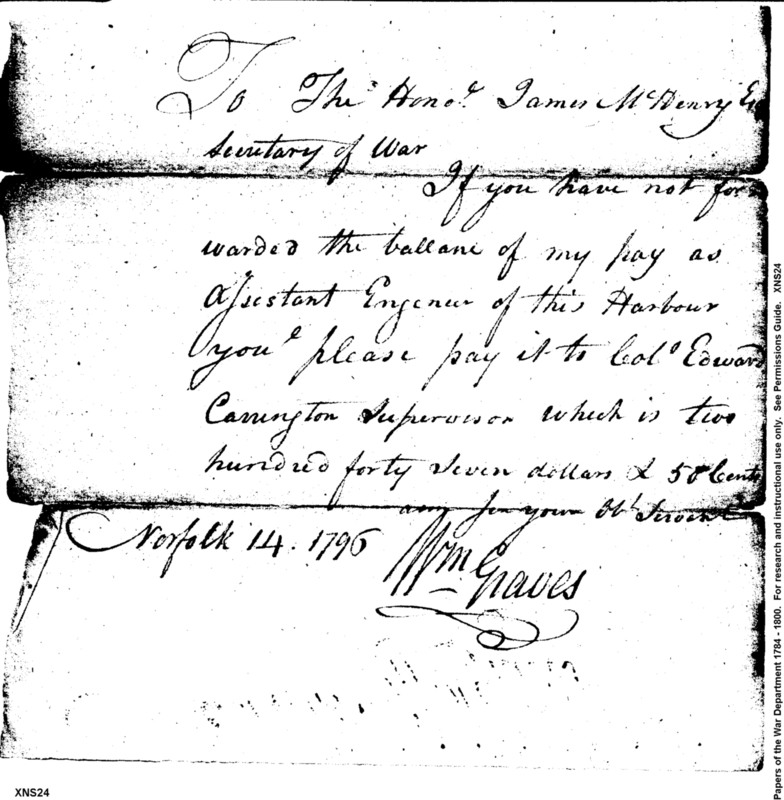 To The Hono.r James McHenry Esq
Secretary of War
If you have not for
warded the ballane of my pay as
Assestant Engeneer of this Harbour
you.l please pay it to Col.o Edward
Carrington Supervisor which is two
hundred forty seven dollars & 50 Cents
am Sir your Ob.t Servent
Norfolk 14. 1796
Wm Graves
XNS24
Papers of the War Department 1784 - 1800. For research and instructional use only. See Permissions Guide. XNS24